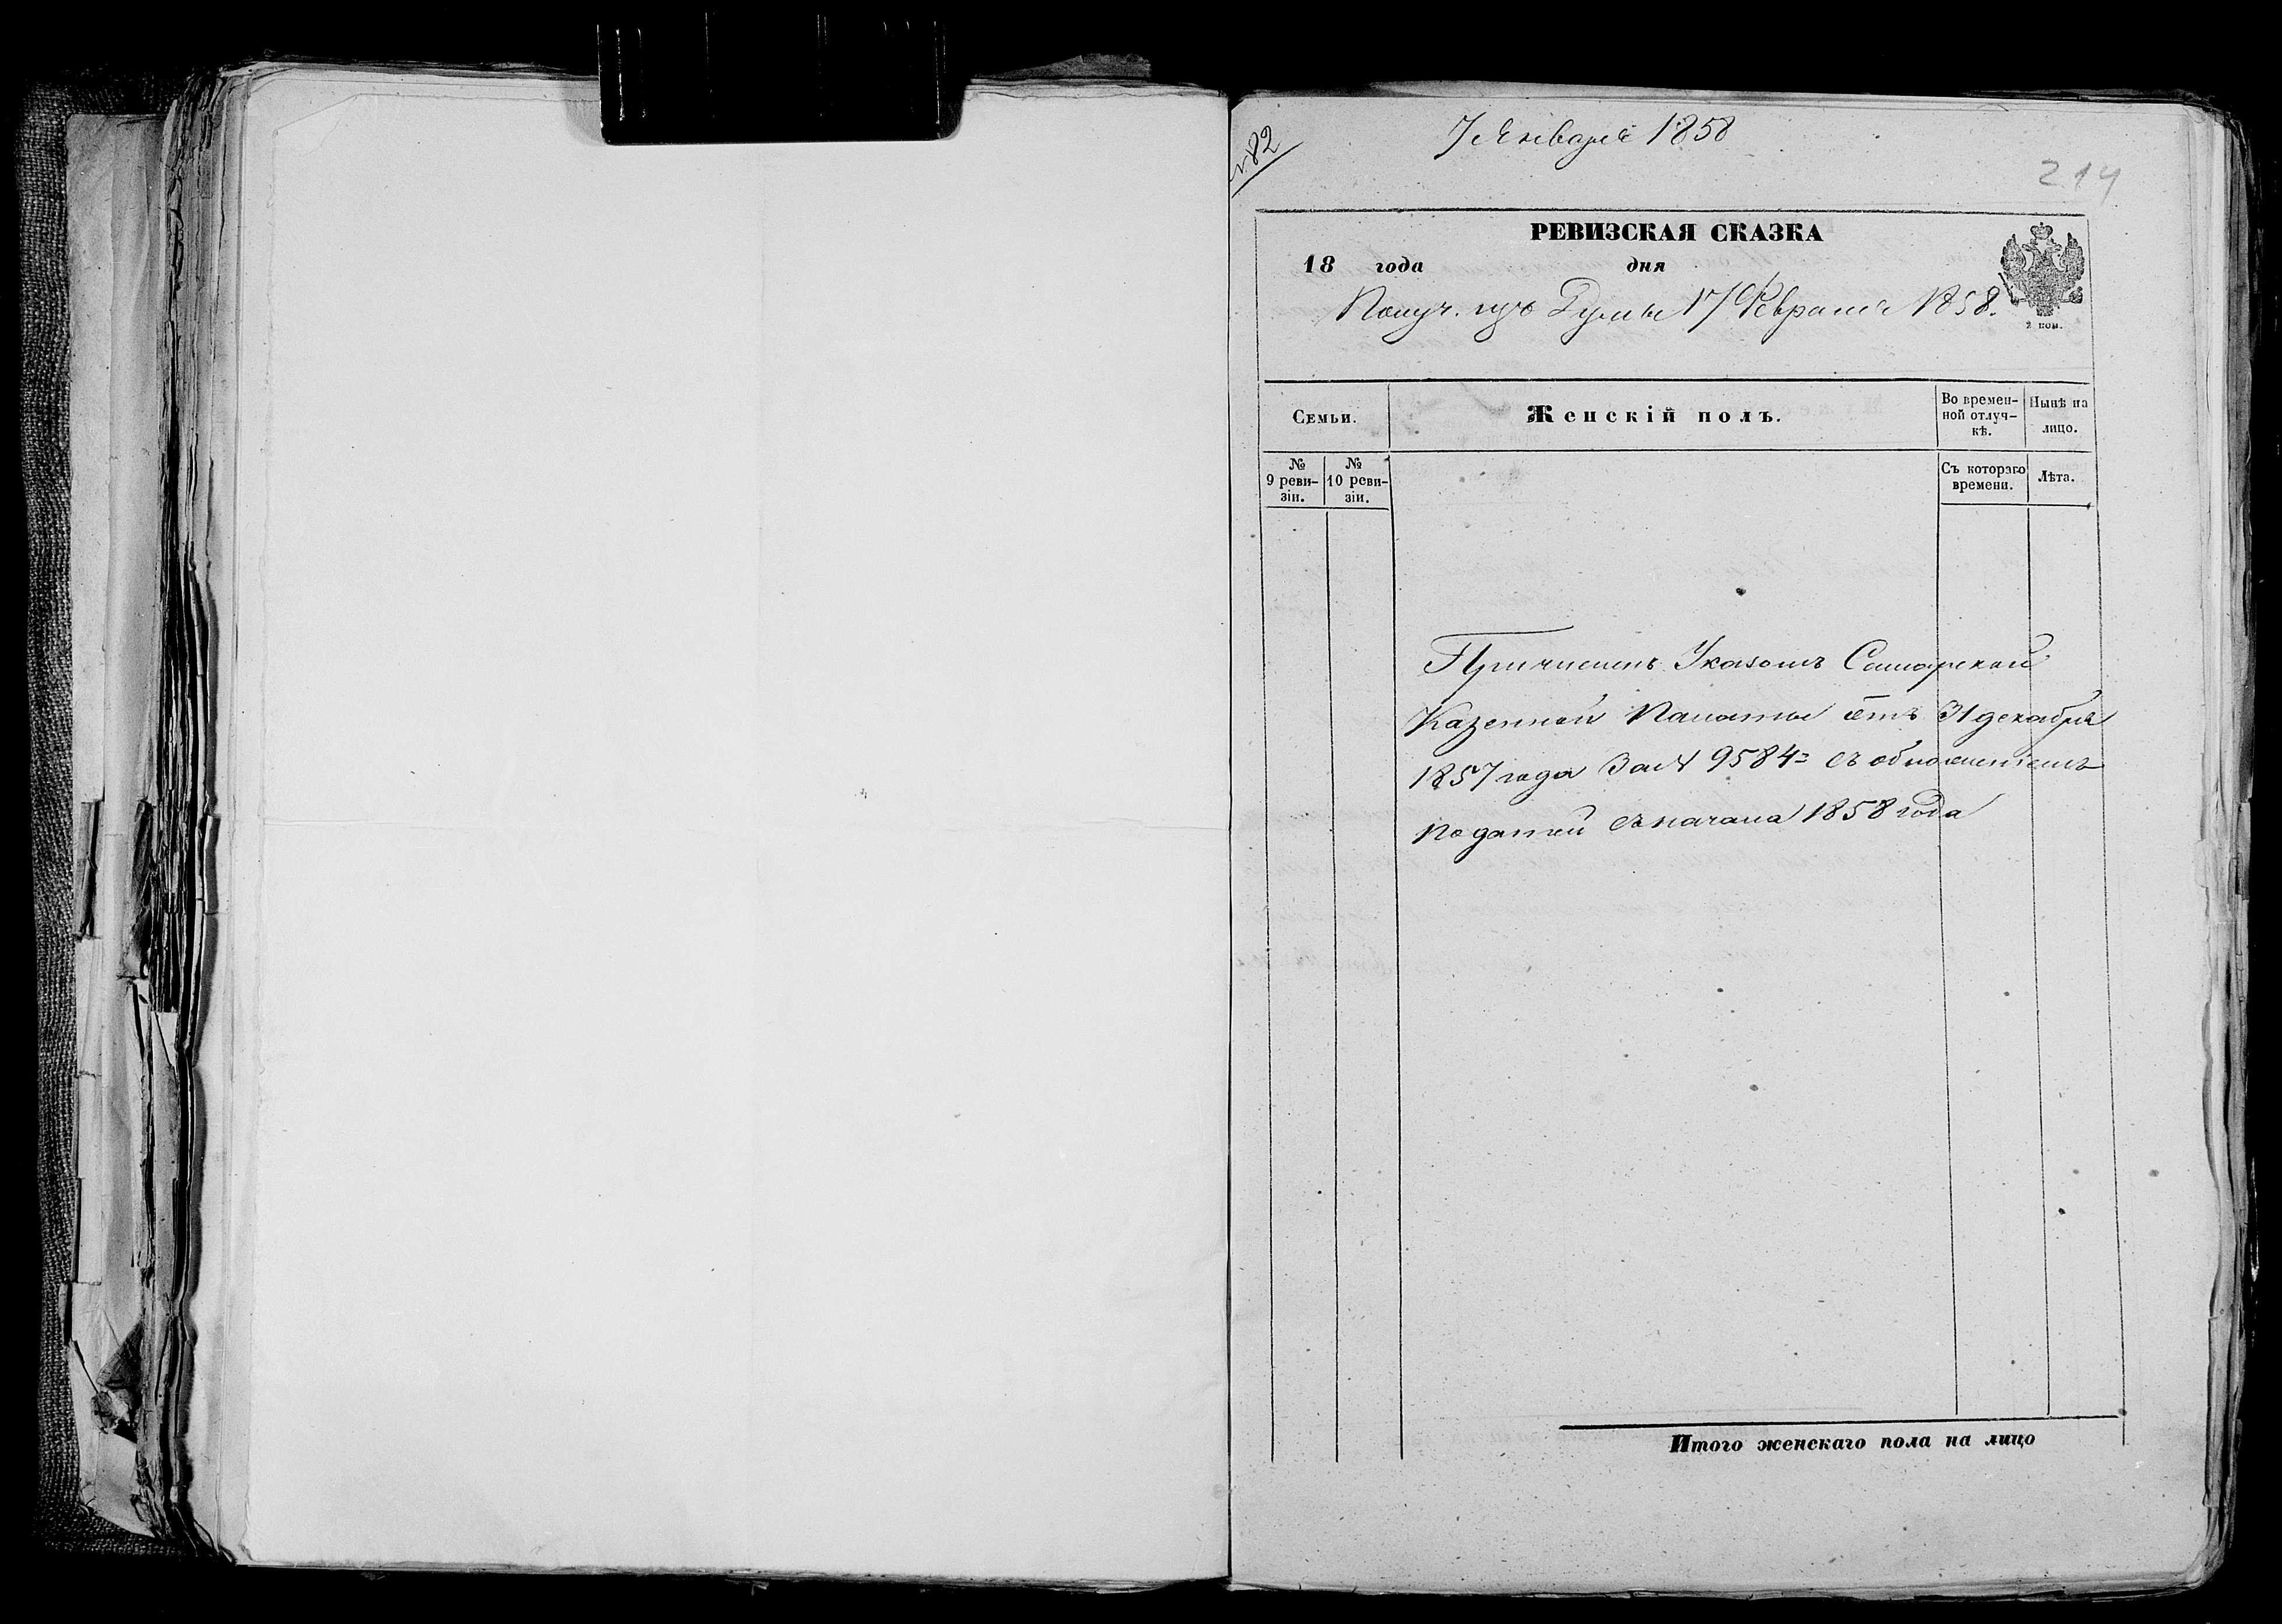 № 82
7 Января 1858
214
РЕВИЗСКАЯ СКАЗКА
18 года дня
Получ. изъ Думы 17 Февраля 1858.
2 коп.
Семьи.
Женскій полъ.
Во времен-
ной отлуч-
кѣ.
Нынѣ на
лицо.
№
9 реви-
зіи.
№
10 реви-
зіи.
Съ котораго
времени.
Лѣта.
Причисленъ Указомъ Самарской
Казенной Палаты отъ 31 декабря
1857 года За № 9584 съ обложеніемъ
податей съ начала 1858 года
Итого женскаго пола на лицо